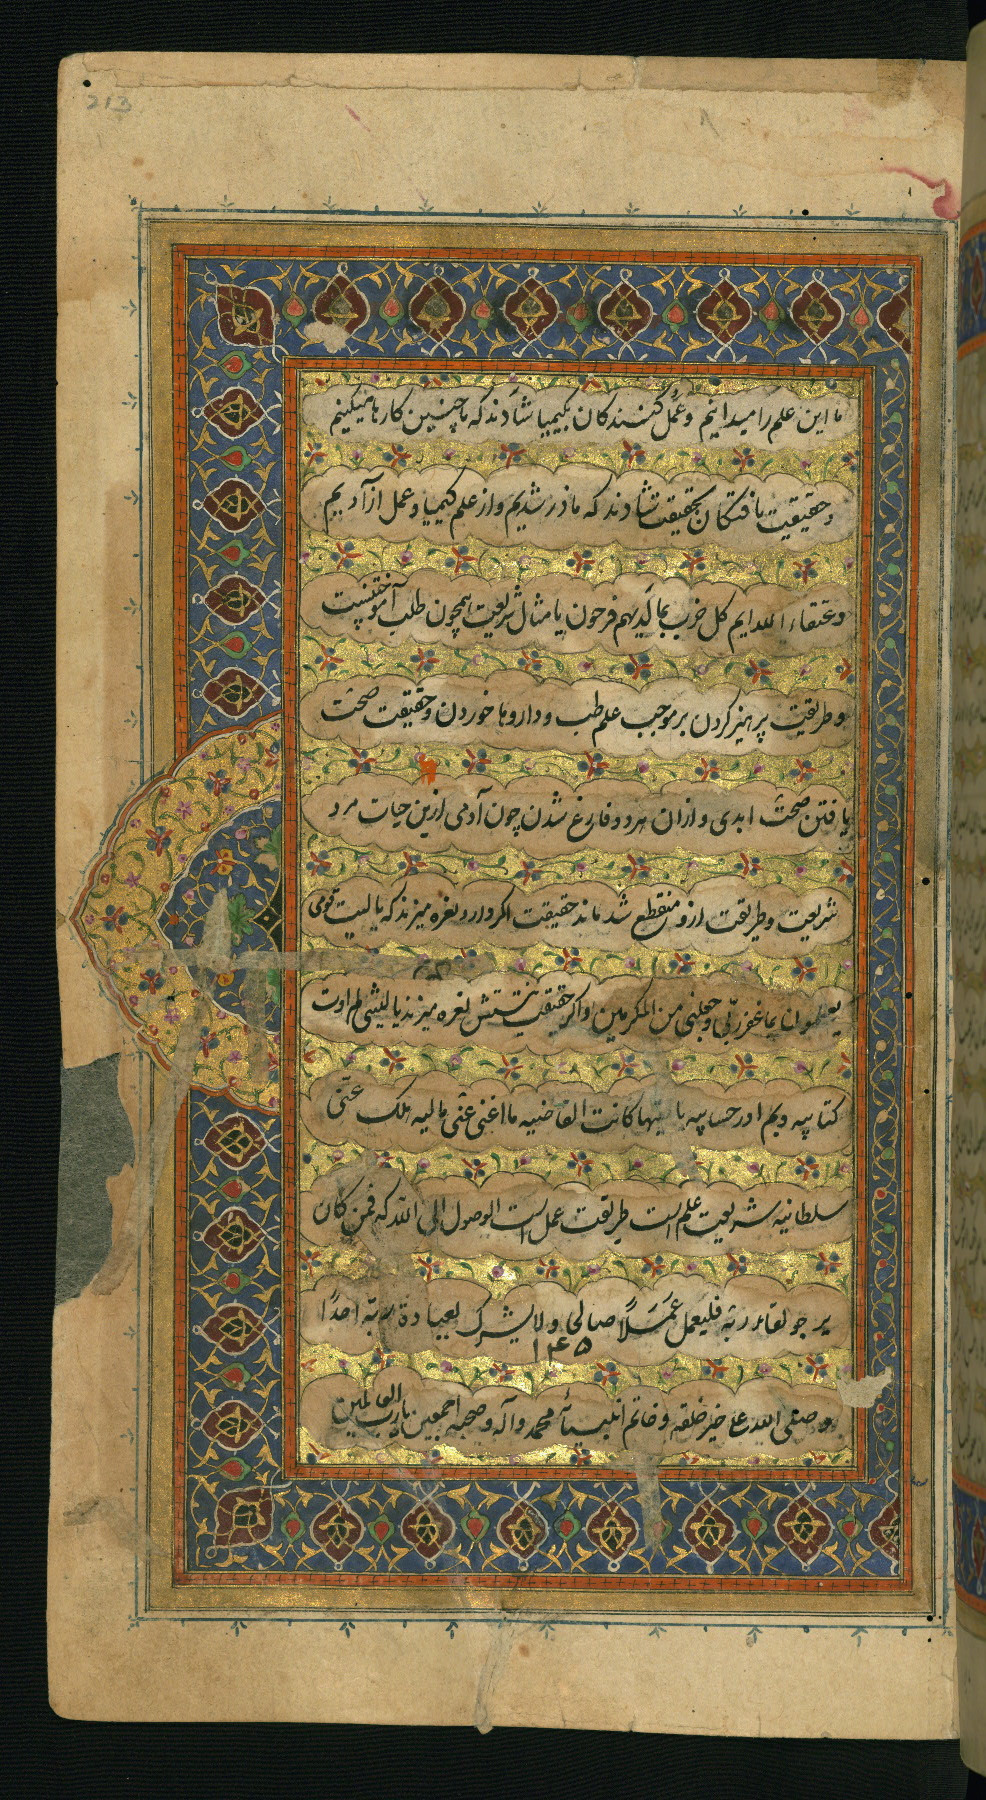 213
ما این علم را میدانیم و عمل کنندکان بکیمیا شادند که ما چنین کارها میکنیم
و حقیقت یافتکان بحقیقت شادند که ما زر شدیم و از علم کیمیا و عمل آن آزادیم
و عتقاء اللدایم کل حزب بما لدیهم فرحون یا مثال شریعت همچون علم طب آموختنست
و طریقت پرهیز کردن بر موجب علم طب و داروها خوردن و حقیقت صحت
یافتن صحت ابدی و ازان هر دو فارغ شدن چون آدمی ازین حیات مرد
شریعت و طریقت ازو منقطع شد ماند حقیقت اکر دارد نعره میزند که یا لیت قومی
یعلمون بما غفر ربی و جعلنی من المکرمین و اکر حقیقت نیستش نعره میزند یا لیتنی لم اوت
کتابیه و لم ادر حسابیه یا لیتها کانت القاضیه ما اغنی عنی مالیه هلک عنی
سلطانیه شریعت علم است طریقت عمل است الوصول الی الله که فمن کان
یرجو لقاء ربه فلیعمل عَمَلاً صالحا ولا یشرک بعبادة ربّه احدًا
١٢۴۵
و صلی الله علی خیر خلقه و خاتم انبیائه محمد و آله و صحبه اجمعین یارب العالمین